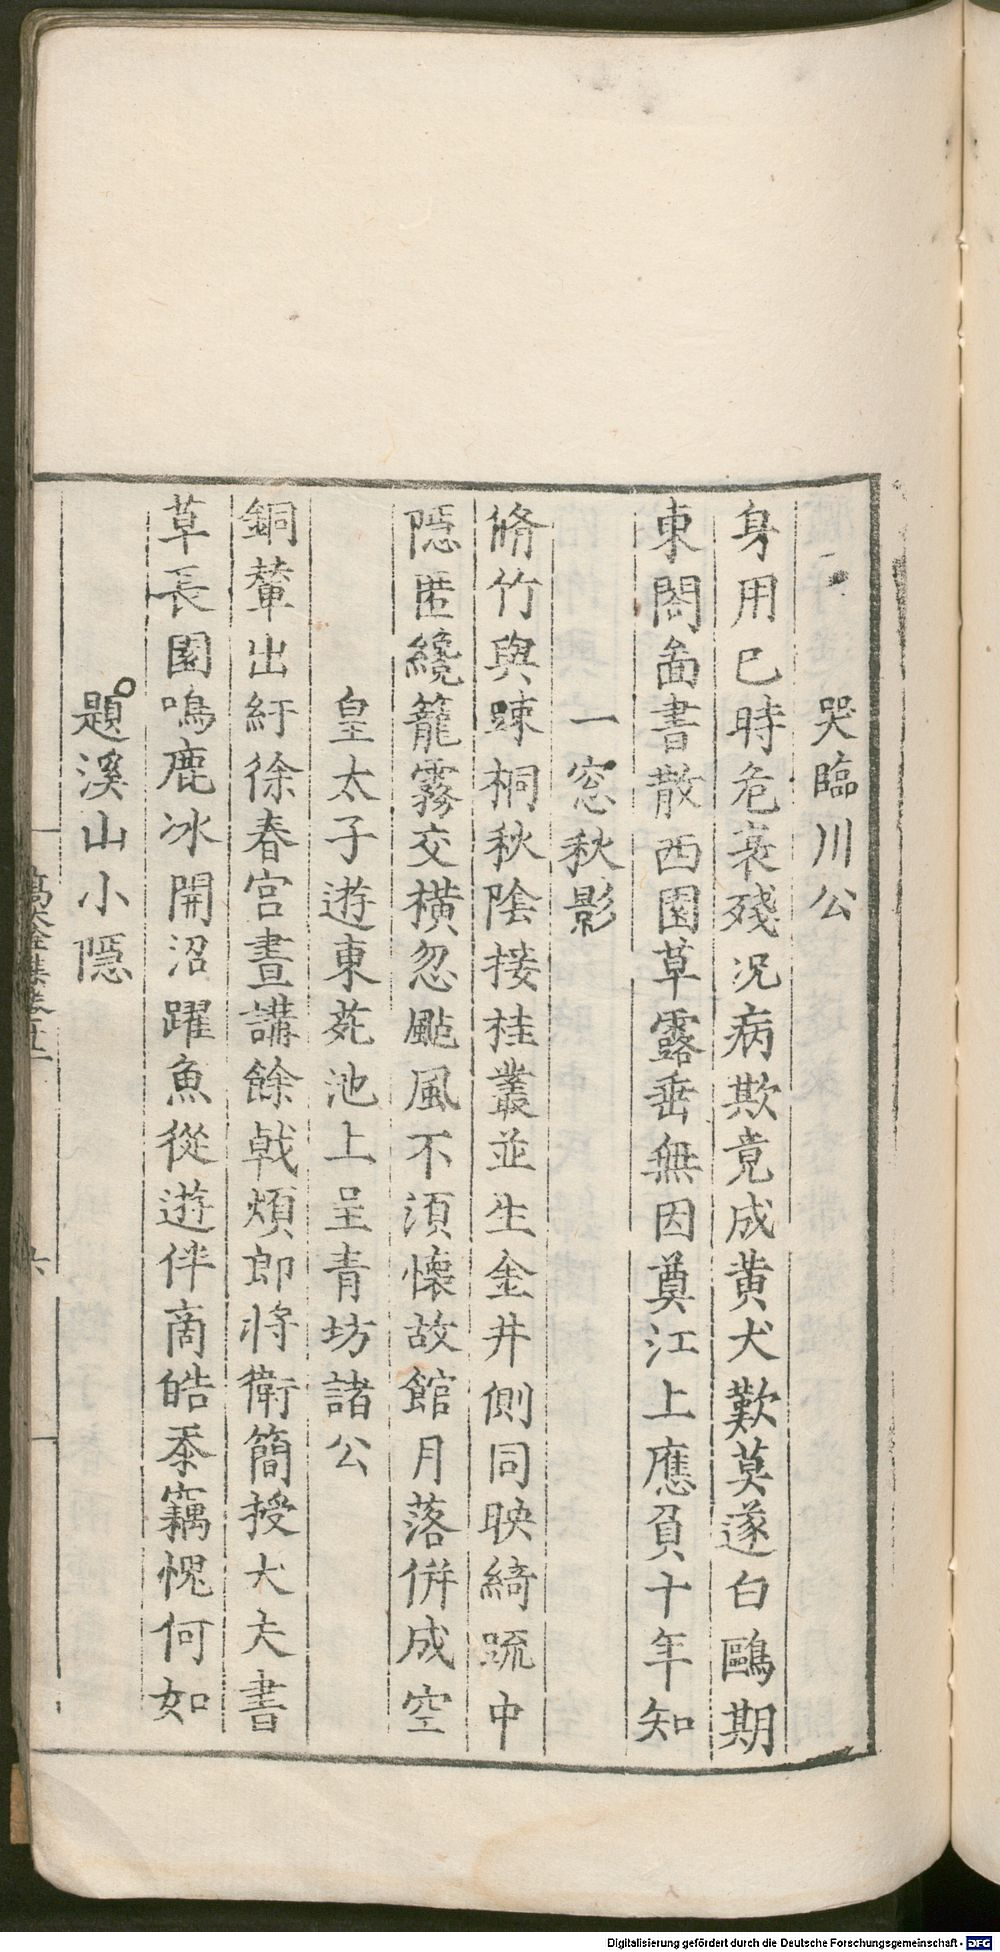 哭臨川公
身用已時危衰殘况病欺竟成黄犬歎莫遂白鷗期
東閤啚書散西園草露垂無因奠江上應負十年知
一窓秋影
脩竹與踈桐秋陰接桂叢並生金井側同映綺踈中
隠匿纔籠霧交横忽颭風不須懐故館月落併成空
皇太子遊東苑池上呈青坊諸公
銅輦出紆徐春宫晝講餘戟煩郎將衛簡授大夫書
草長園鳴鹿冰開沼躍魚從遊伴商皓忝竊愧何如
題溪山小隠
高太全集卷十二
六
Digitalisierung gefördert durch die Deutsche Forschungsgemeinschaft - DFG